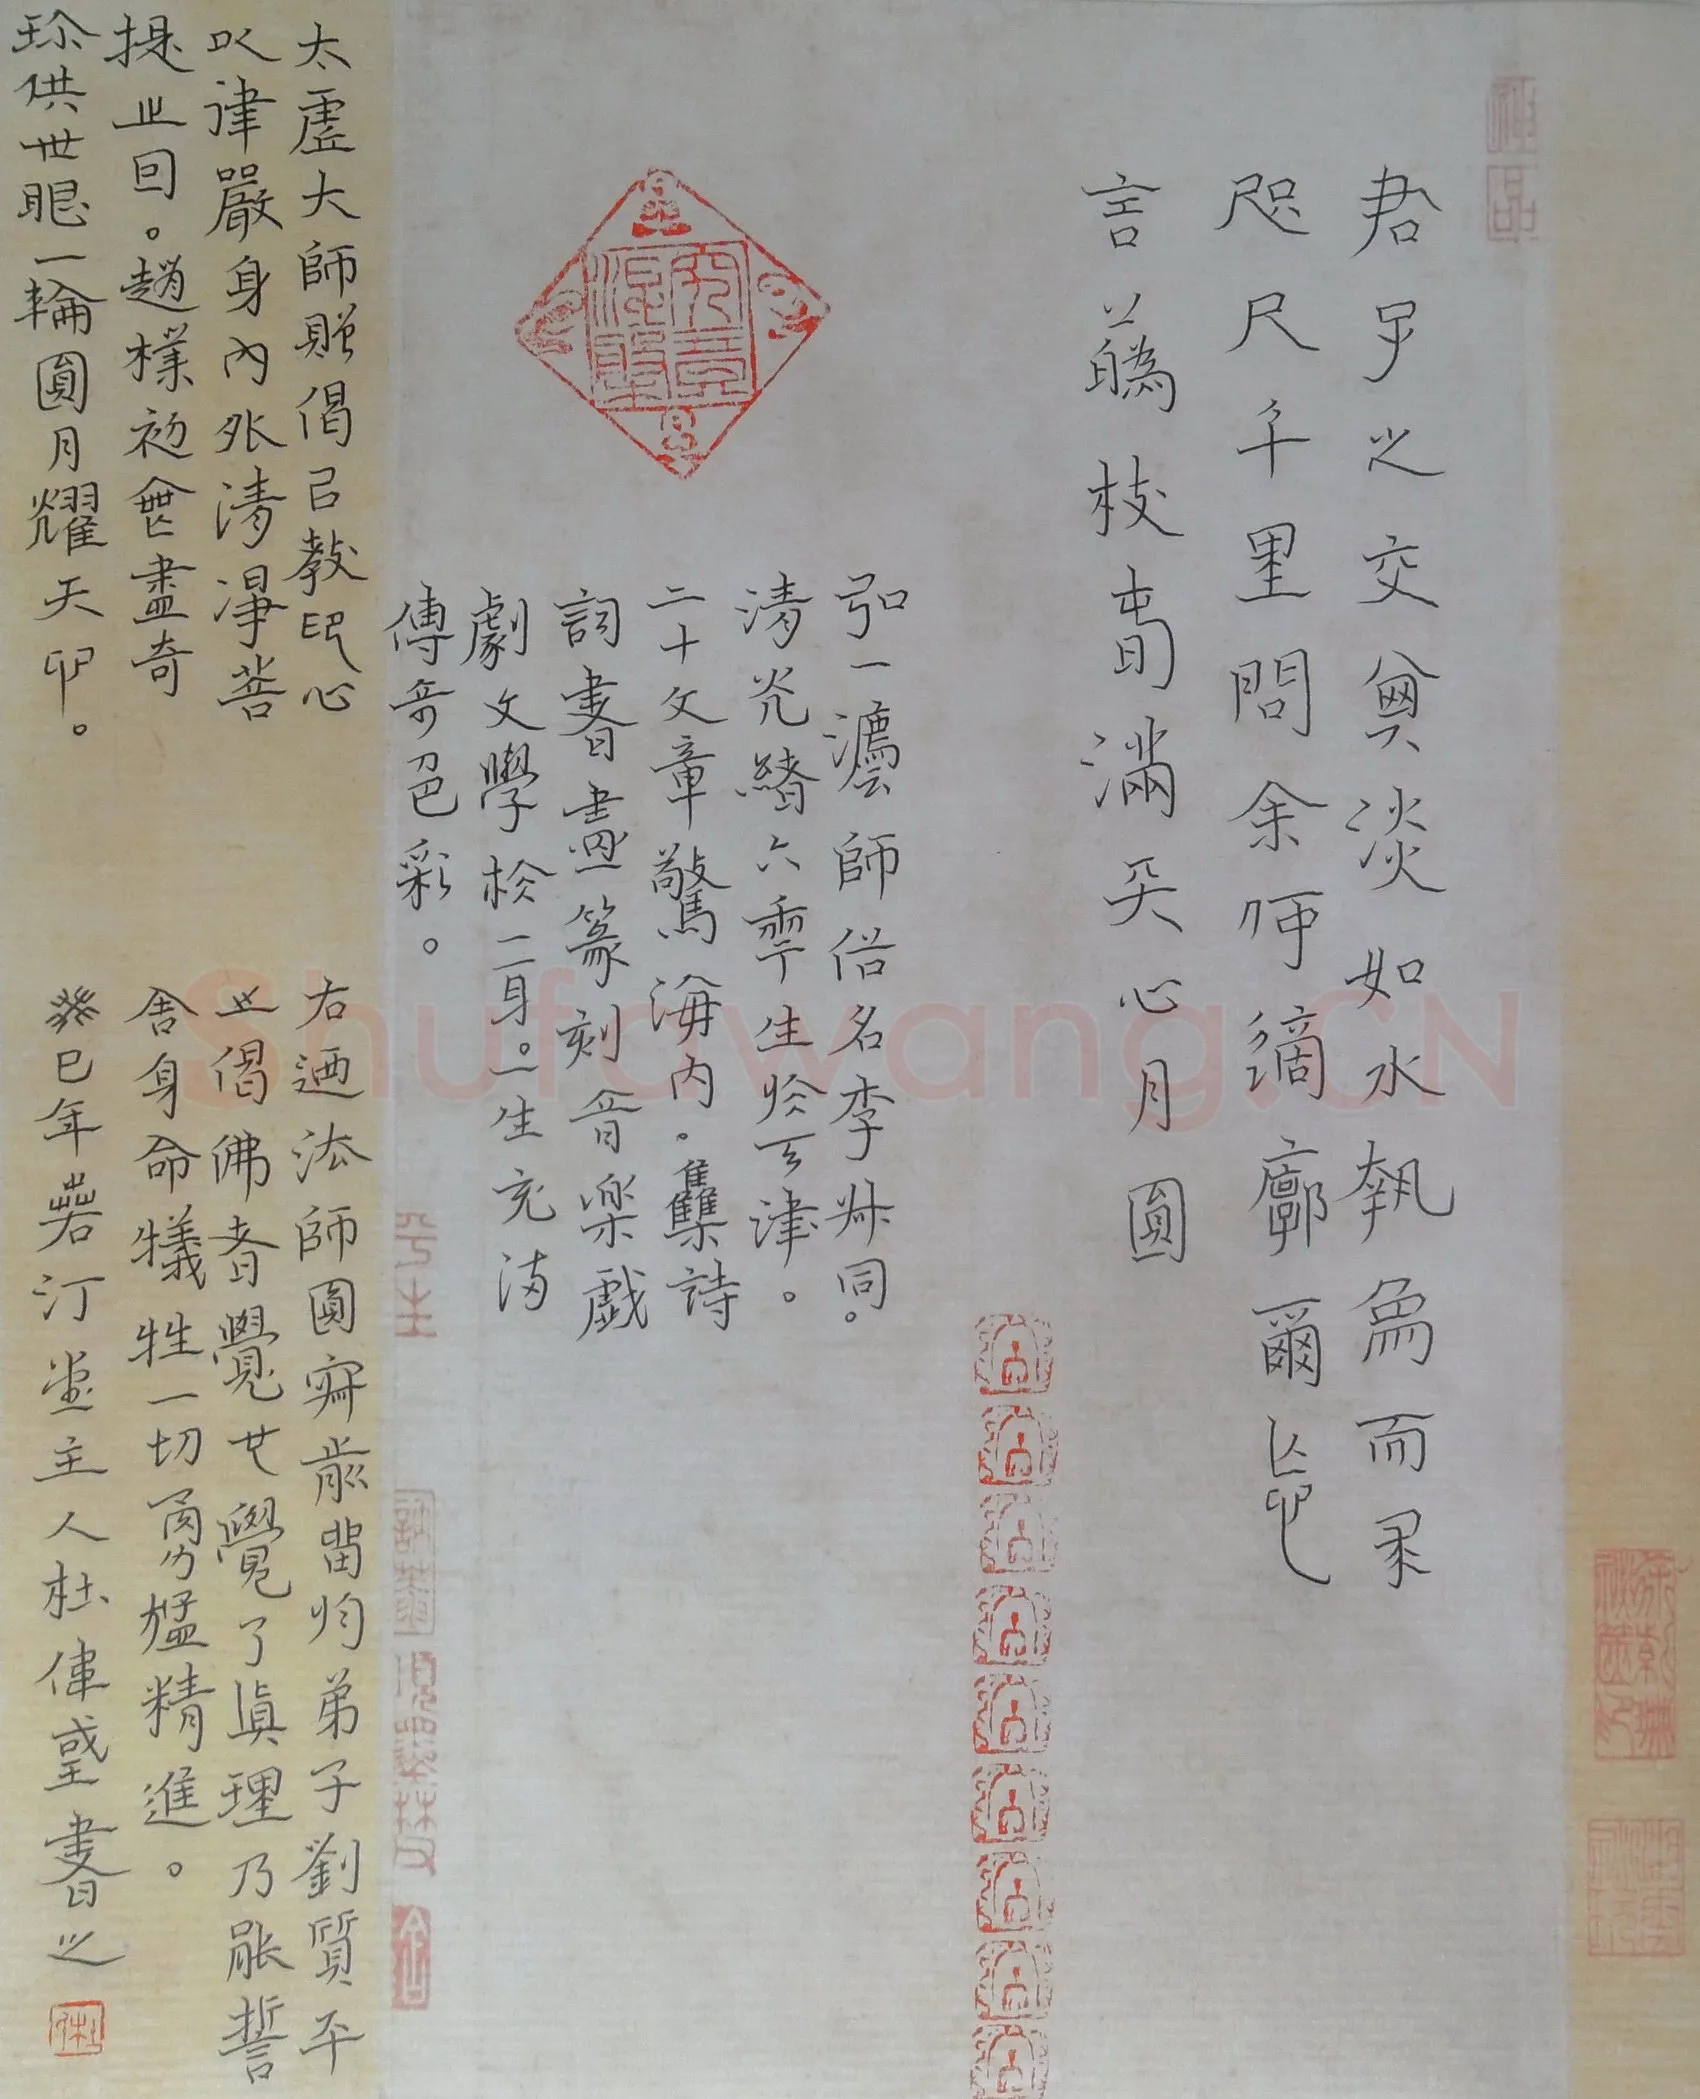 君子之交其淡如水執象而求
咫尺千里問余何適廓爾忘
言華枝春滿天心月圓
弘一灋師俗名李叔同。
清光緒六年生於天津。
二十文章驚海内。集詩
詞書畫篆刻音樂戲
劇文學於一身。一生充滿
傳奇色彩。
太虛大師贈偈曰教印心
以律嚴身內外清淨菩
提之因。趙樸初盡奇
珍供世眼一輪圓月耀天心。
右乃法師圓寂前留與弟子劉質平
之偈佛者覺也覺了真理乃能誓
舍身命犧牲一切勇猛精進。
癸巳年若汀堂主人杜偉書之
Shufawang.CN